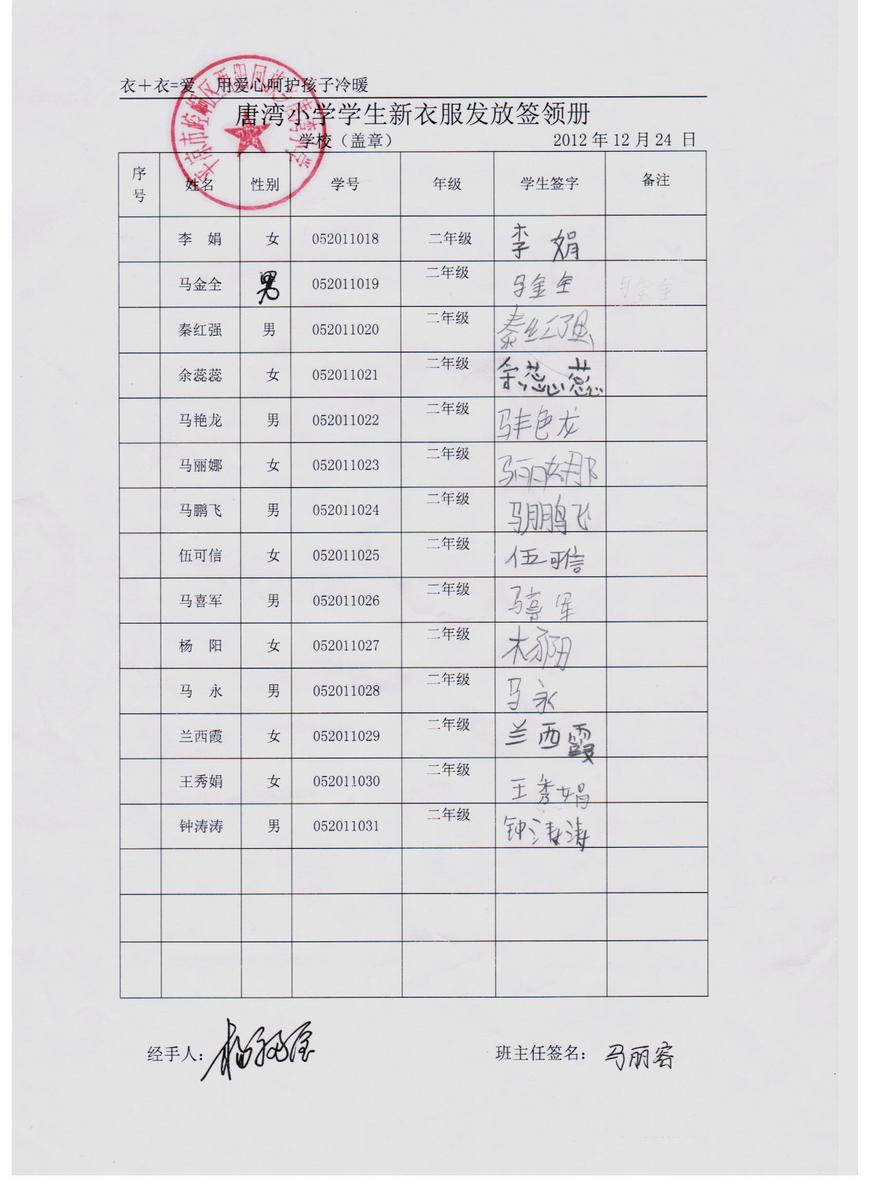 衣＋衣=爱 用爱心呵护孩子冷暖
唐湾小学学生新衣服发放签领册
学校（盖章） 2012 年 12 月 24 日
序号 姓名 性别 学号 年级 学生签字 备注
李 娟 女 052011018 二年级 李 娟
马金全 男 052011019 二年级 马金全 马金全
秦红强 男 052011020 二年级 秦红强
余蕊蕊 女 052011021 二年级 余蕊蕊
马艳龙 男 052011022 二年级 马艳龙
马丽娜 女 052011023 二年级 马丽娜
马鹏飞 男 052011024 二年级 马鹏飞
伍可信 女 052011025 二年级 伍可信
马喜军 男 052011026 二年级 马喜军
杨 阳 女 052011027 二年级 杨阳
马 永 男 052011028 二年级 马永
兰西霞 女 052011029 二年级 兰西霞
王秀娟 女 052011030 二年级 王秀娟
钟涛涛 男 052011031 二年级 钟涛涛
经手人： 班主任签名： 马丽容